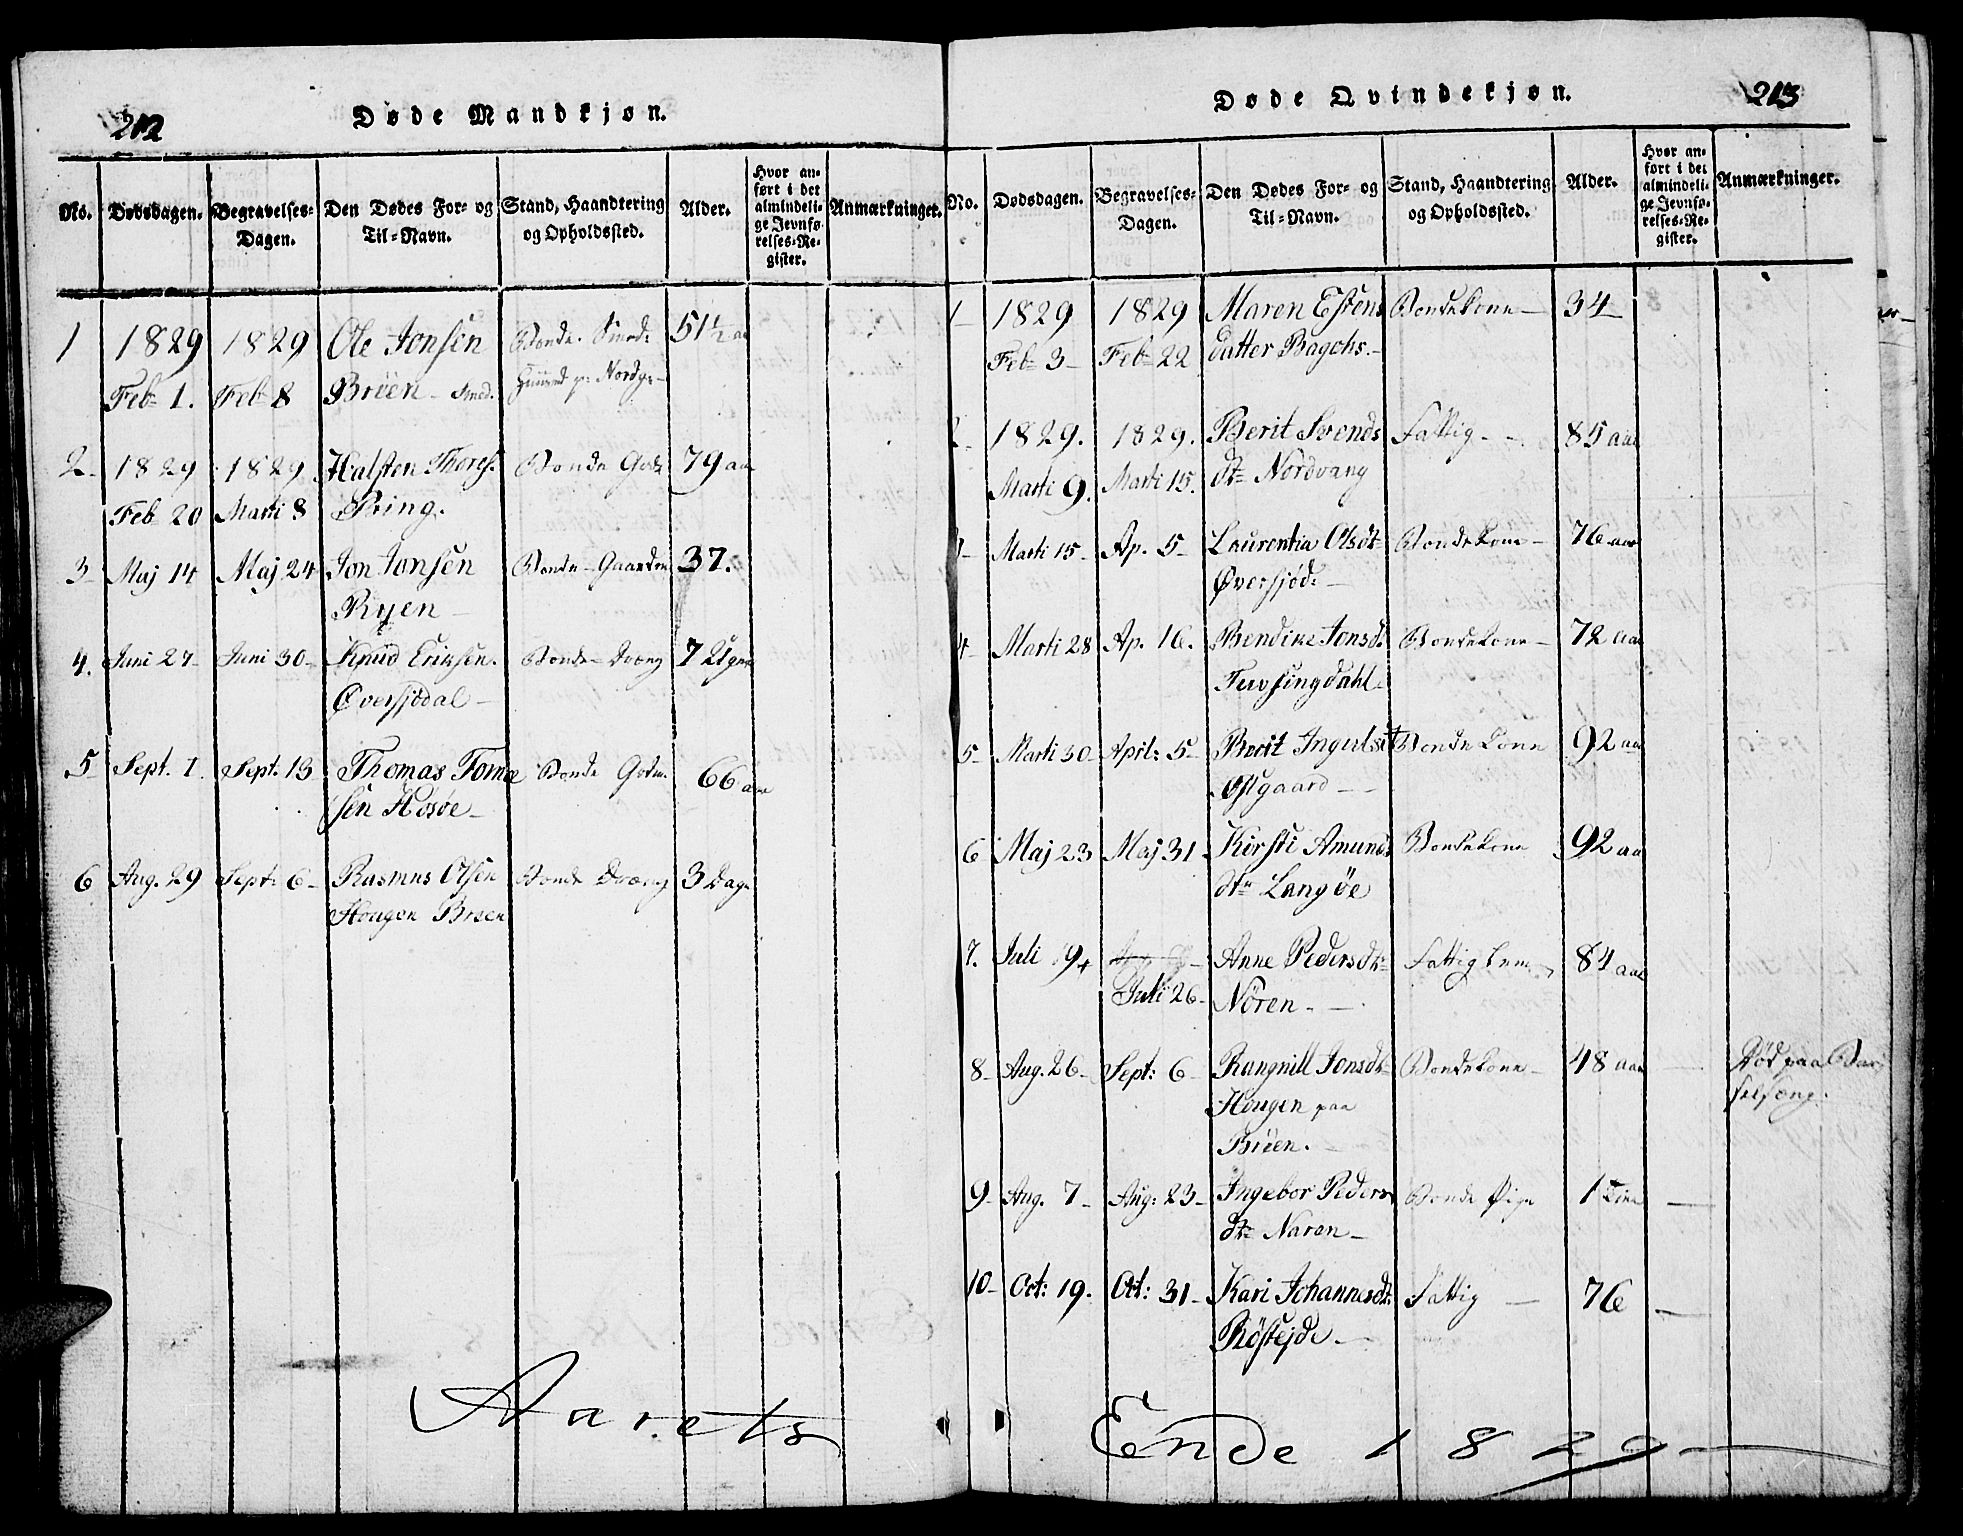 212
Døde Mandkjøn.
No. Dødsdagen. Begravelses-Dagen. Den Dødes For- og Til-Navn. Stand, Haandtering og Opholdssted. Alder. Hvor anført i det almindelige Jevnførelses-Register. Anmærkninger.
1 1829 1829 Ole Jonsen Bonde 51½ aa
Feb 1. Feb 8 Brüen Smed.
2 1829 1829 Halsten Thores. Bonde 79 aa
Feb 20 Marti 8 Ring.
3 Maj 14 Maj 24 Jon Jonsen Bonde 37.
Ryen
4. Juni 27 Juni 30 Knud Eriksen. Bonde Dreng 7
Øversjødal
5 Sept. 1. Sept. 13 Thomas Tomæ Bonde 66 aar
sen Hösöe
6 Aug. 29 Sept. 6 Rasmus Olsen Bonde Dreng 3 Dage
Hougen Brüen
Aarets
213
Døde Qvindekjøn.
No. Dødsdagen. Begravelses-Dagen. Den Dødes For- og Til-Navn. Stand, Haandtering og Opholdssted. Alder. Hvor anført i det almindelige Jevnførelses-Register. Anmærkninger.
1 1829 1829 Maren Estens Bondekone 34
Feb 3 Feb 22 datter
2 1829. 1829. Berit Svends Fattig 85 aar
Marti 9. Marti 15. dtr Nordvang
Marti 15 Ap. 5 Laurentia Olsdtr Bondekone 76 aar
Øversjöd.
4 Marti 28 Ap. 16. Bendixe Jonsd. Bondekone 72 aar
5 Marti 30 April: 5 Berit Bondekone 92 aa
Østgaard
6 Maj 23 Maj 31 Kirsti Amunds Bondekone 92 aa
dtr Langöe
7. Juli 19 Anne Pedersdtr Fattiglem 84 aar
Juli 26 Nören.
8 Aug. 26 Sept: 6 Rangnill Jonsdtr Bondekone 48 aar Död paa Bar
Hougen paa selseng.
Brüen.
9 Aug. 7 Aug: 23 Ingebor Peders Bonde Pige 1 Time
dtr Naren
10 Oct: 19. Oct: 31 Kari Johannesdtr Fattig 76
Röstejde
Ende 1829